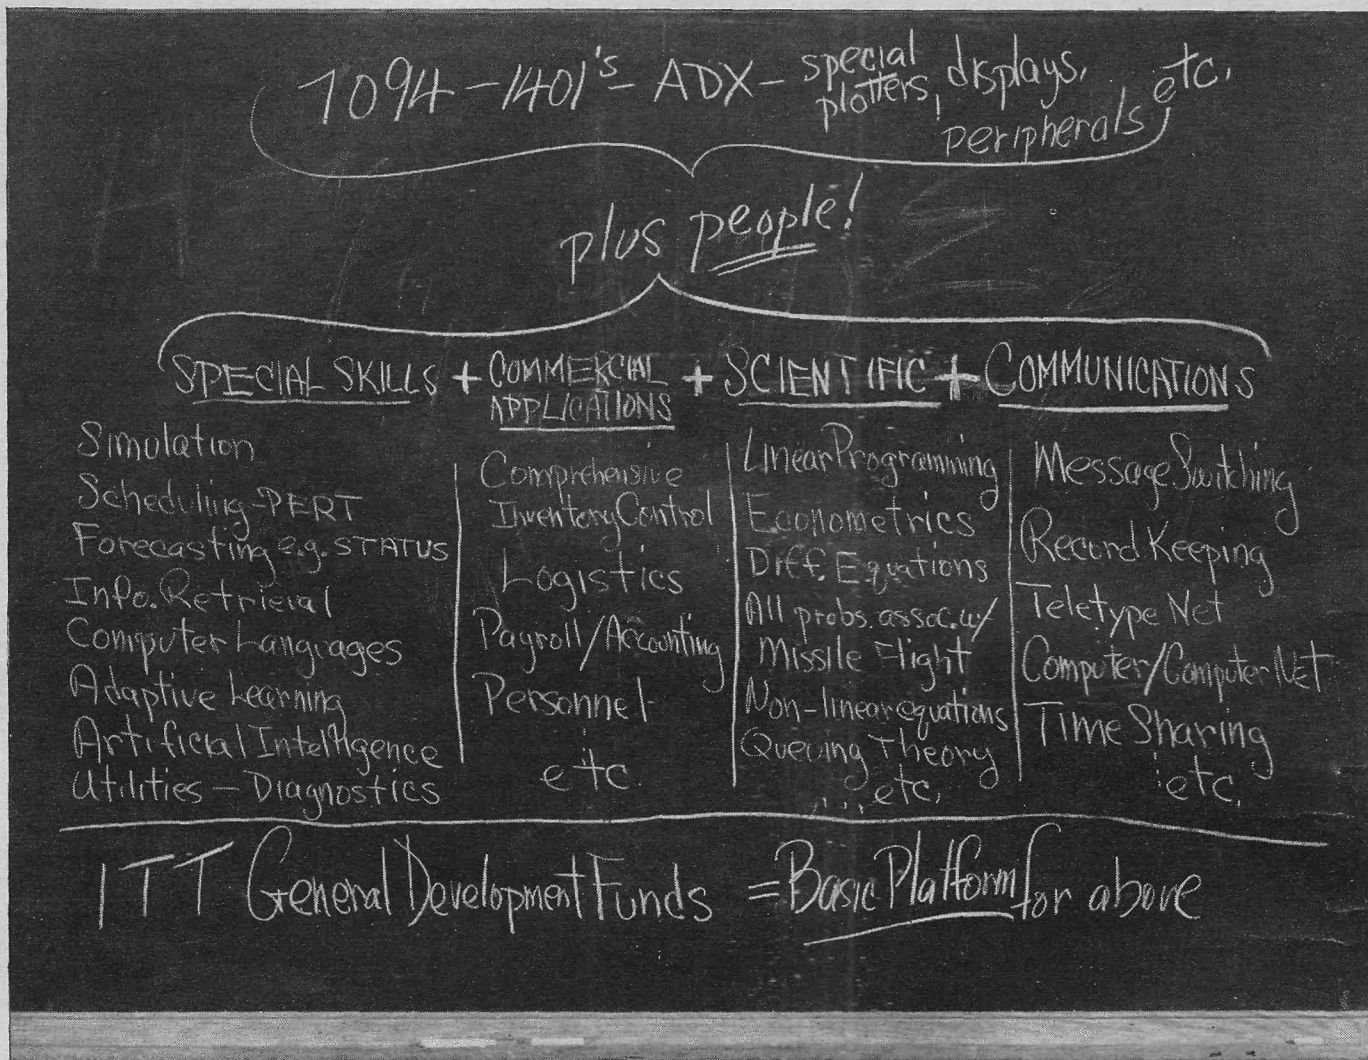 7094-1401's-ADX-special plotters, displays, peripherals, etc.
plus people!
SPECIAL SKILLS + COMMERCIAL APPLICATIONS + SCIENTIFIC + COMMUNICATIONS
Simulation
Scheduling-PERT
Forecasting e.g. STATUS
Info. Retrieval
Computer Languages
Adaptive Learning
Artificial Intelligence
Utilities - Diagnostics
Comprehensive
Inventory Control
Logistics
Payroll/Accounting
Personnel
etc.
Linear Programming
Econometrics
Diff. Equations
All probs. assoc. w/
Missile Flight
Non-linear equations
Queuing Theory
... etc.
Message Switching
Record Keeping
Teletype Net
Computer/Computer Net
Time Sharing
etc.
ITT General Development Funds = Basic Platform for above